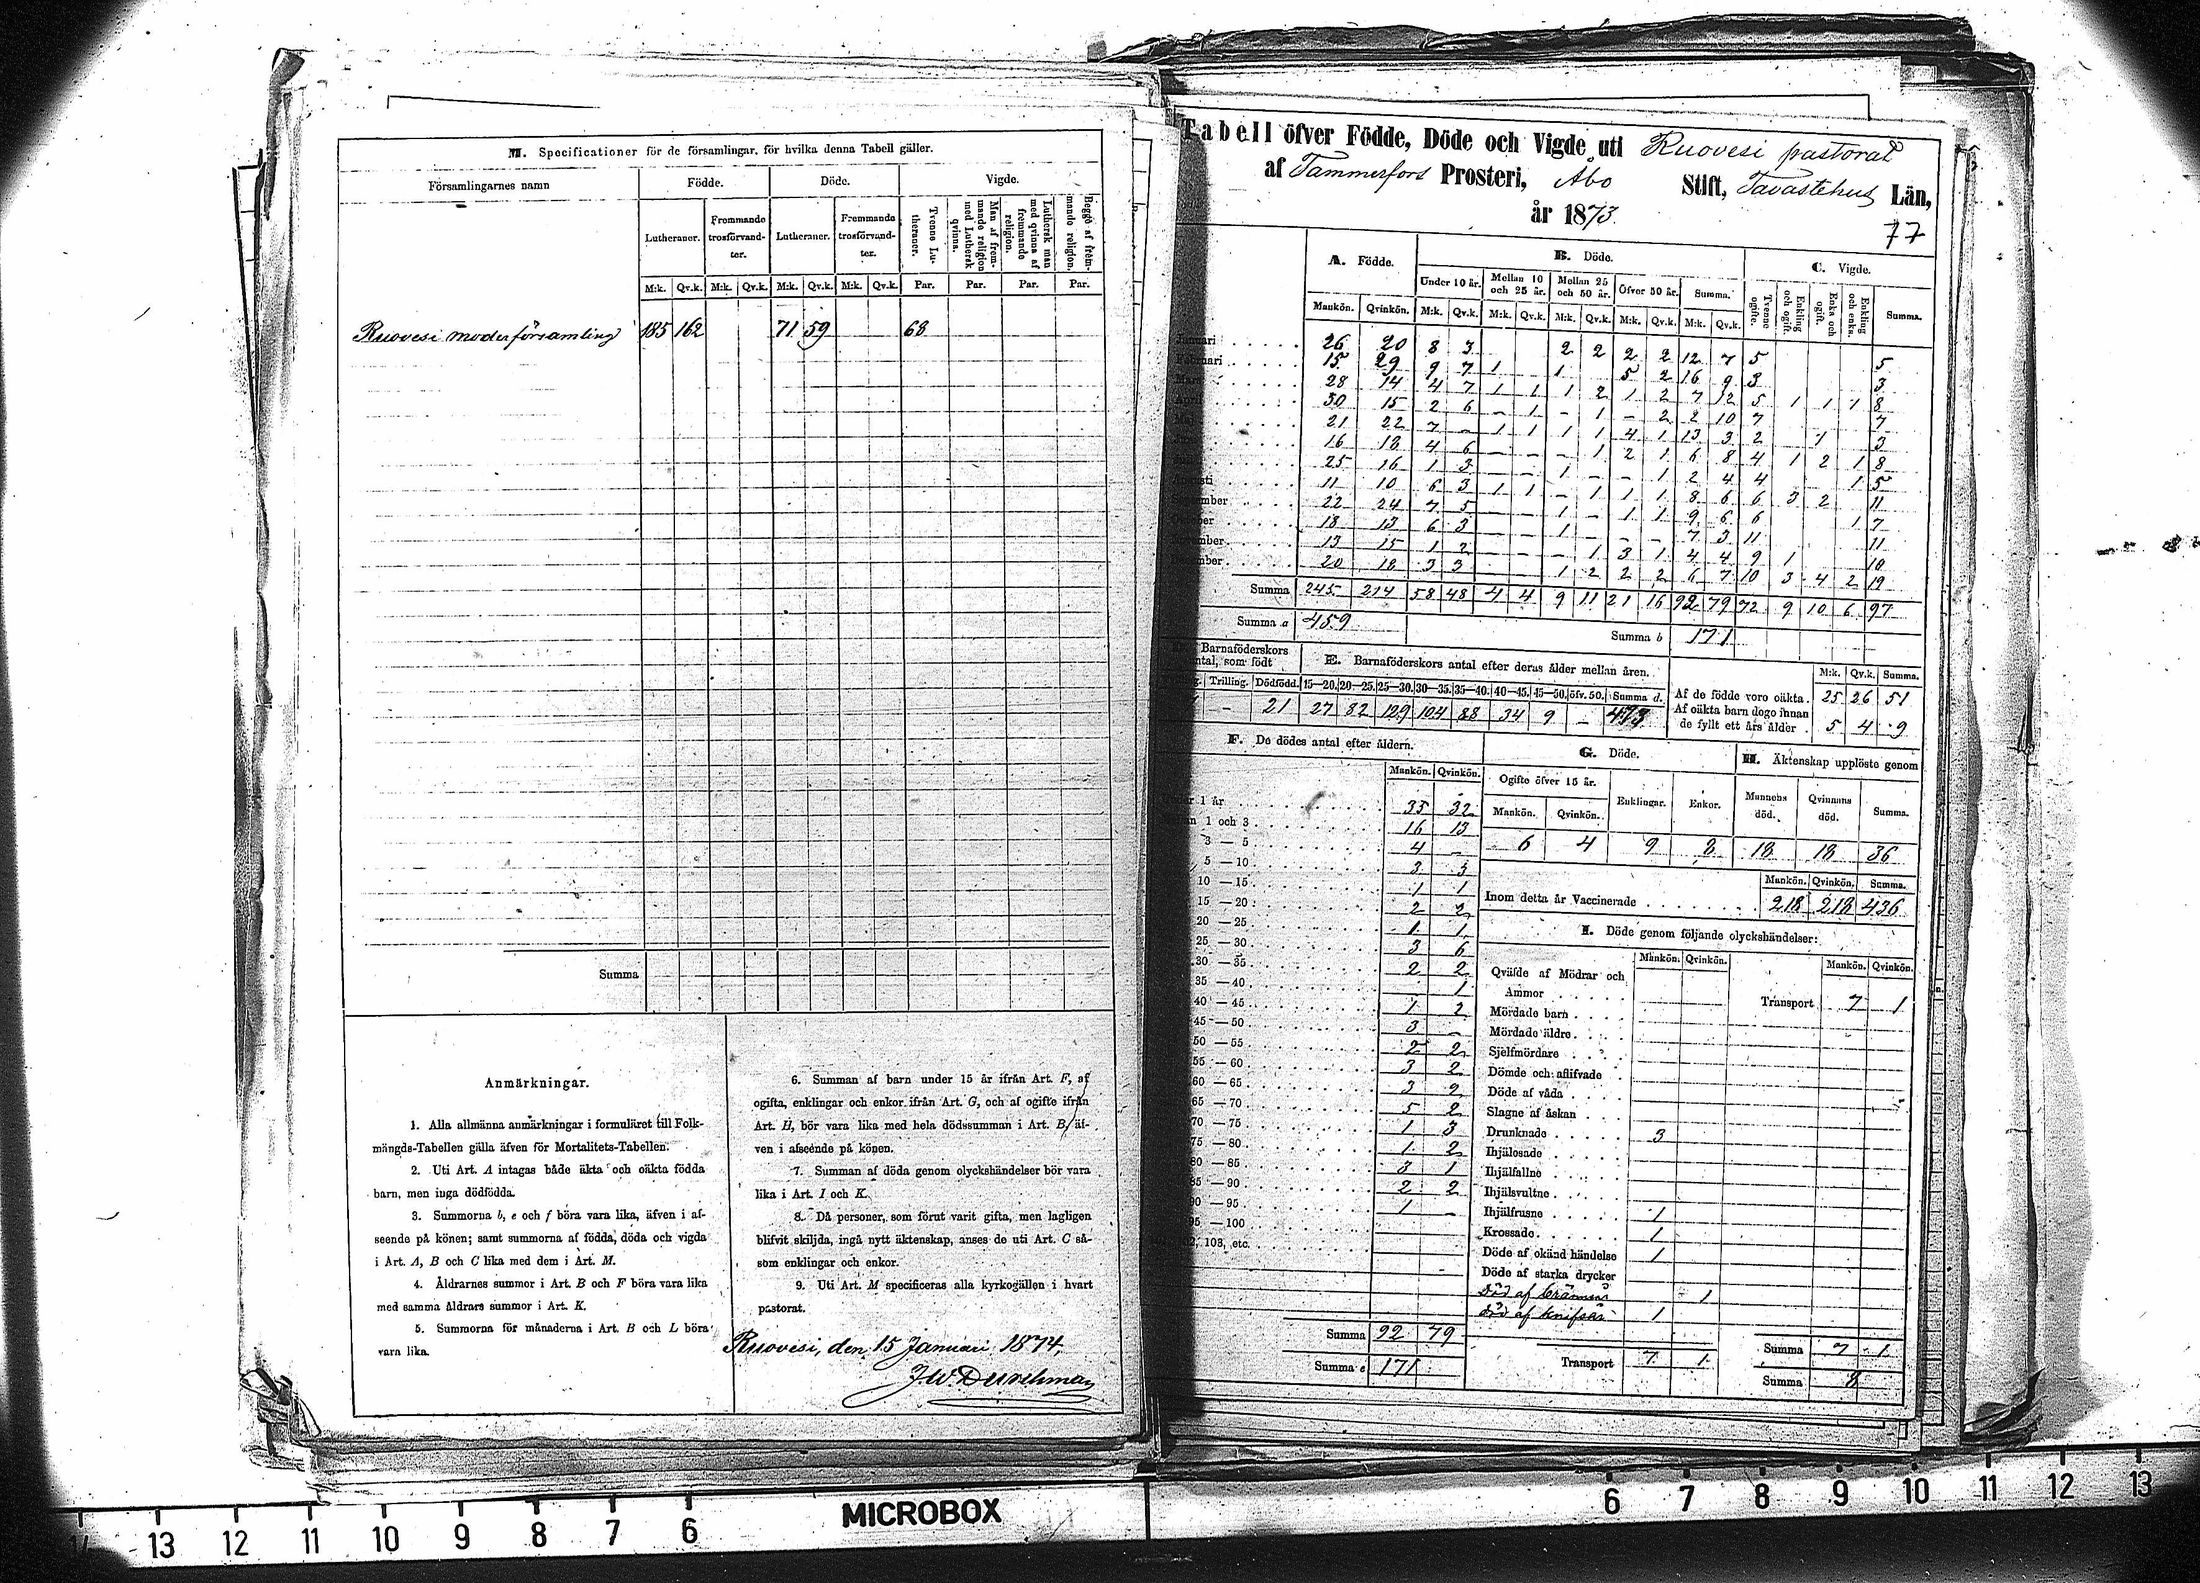 M. Specificationer för de församlingar, för hvilka denna Tabell gäller.
Församlingarnes namn
Födde.
Döde.
Vigde.
Lutheraner.
Fremmande trosförvandter.
Lutheraner.
Fremmande trosförvandter.
Tvenne Lutheraner.
Man af fremmande religion med Luthersk qvinna.
Luthersk man med qvinna af fremmande religion.
Begge af fremmande religion.
M:k. Qv.k. M:k. Qv.k. M:k. Qv.k. M:k. Qv.k. Par. Par. Par. Par.
Ruovesi moderförsamling 185 162 71 59 68
Summa
Anmärkningar.
1. Alla allmänna anmärkningar i formuläret till Folk-
mängds-Tabellen gälla äfven för Mortalitets-Tabellen.
2. Uti Art. A intagas både äkta och oäkta födda
barn, men inga dödfödda.
3. Summorna b, e och f böra vara lika, äfven i af-
seende på könen; samt summorna af födda, döda och vigda
i Art. A, B och C lika med dem i Art. M.
4. Åldrarnes summor i Art. B och F böra vara lika
med samma åldrars summor i Art. K.
5. Summorna för månaderna i Art. B och L böra
vara lika.
6. Summan af barn under 15 år ifrån Art. F, af
ogifta, enklingar och enkor ifrån Art. G, och af ogifte ifrån
Art. H, bör vara lika med hela dödssumman i Art. B, äf-
ven i afseende på könen.
7. Summan af döda genom olyckshändelser bör vara
lika i Art. I och K.
8. Då personer, som förut varit gifta, men lagligen
blifvit skiljda, ingå nytt äktenskap, anses de uti Art. C så-
som enklingar och enkor.
9. Uti Art. M specificeras alla kyrkogällen i hvart
pastorat.
Ruovesi, den 15 Januari 1874.
J.W. Durchman
Tabell öfver Födde, Döde och Vigde uti Ruovesi pastorat
af Tammerfors Prosteri, Åbo Stift, Tavastehus Län,
år 1873.
77
A. Födde.
B. Döde.
C. Vigde.
Under 10 år. Mellan 10 och 25 år. Mellan 25 och 50 år. Öfver 50 år. Summa.
Tvenne ogifte. Enkling och ogift. Enka och ogift. Enkling och enka. Summa.
Mankön. Qvinkön. M:k. Qv.k. M:k. Qv.k. M:k. Qv.k. M:k. Qv.k. M:k. Qv.k.
Januari 26 20 8 3 2 2 2 2 12 7 5 5
15 29 9 7 1 1 5 2 16 9 3 3
28 14 4 7 1 1 1 2 1 2 7 12 5 1 1 1 8
30 15 2 6 - 1 - 1 - 2 2 10 7 7
21 22 7 - 1 1 1 1 4 1 13 3 2 1 3
16 18 4 6 - - - 1 2 1 6 8 4 1 2 1 8
25 16 1 3 - - 1 - - 1 2 4 4 1 5
11 10 6 3 1 1 - 1 1 1 8 6 6 3 2 11
22 24 7 5 - - 1 - 1 1 9 6 6 1 7
18 13 6 3 - - 1 - - - 7 3 11 11
13 15 1 2 - - - 1 3 1 4 4 9 1 10
20 18 3 3 - - 1 2 2 2 6 7 10 3 4 2 19
Summa 245 214 58 48 4 4 9 11 21 16 92 79 72 9 10 6 97
Summa a 459
Summa b 171
Barnaföderskors
antal, som födt
E. Barnaföderskors antal efter deras ålder mellan åren.
M:k. Qv.k. Summa.
Trilling. Dödfödd. 15—20. 20—25. 25—30. 30—35. 35—40. 40—45. 45—50. öfv. 50. Summa d.
- 21 27 82 129 104 88 34 9 - 473
Af de födde voro oäkta. 25 26 51
Af oäkta barn dogo innan
de fyllt ett års ålder 5 4 9
F. De dödes antal efter åldern.
Mankön. Qvinkön.
1 år 35 32
1 och 3 16 13
3 — 5 4 -
5 —10 3 3
10 —15 1 1
15 —20 2 2
20 —25 1 1
25 —30 3 6
30 —35 2 2
35 —40 1
40 —45 1 2
45 —50 3 -
50 —55 2 2
55 —60 3 2
60 —65 3 2
65 —70 5 2
70 —75 1 3
75 —80 1 2
80 —85 3 1
85 —90 2 2
90 —95 1 -
95 —100
103, etc.
Summa 92 79
Summa e 171
G. Döde.
Ogifte öfver 15 år.
Mankön. Qvinkön. Enklingar. Enkor.
6 4 9 8
H. Äktenskap upplöste genom
Mannens död. Qvinnans död. Summa.
18 18 36
Mankön. Qvinkön. Summa.
Inom detta år Vaccinerade 218 218 436
I. Döde genom följande olyckshändelser:
Mankön. Qvinkön. Mankön. Qvinkön.
Qväfde af Mödrar och
Ammor
Transport 7 1
Mördade barn
Mördade äldre
Sjelfmördare
Dömde och aflifvade
Döde af våda
Slagne af åskan
Drunknade 3
Ihjälosade
Ihjälfallne
Ihjälsvultne
Ihjälfrusne 1
Krossade 1
Döde af okänd händelse 1
Döde af starka drycker
Död af 1
Död af knifsår 1
Transport 7 1
Summa 7 1
Summa 8
MICROBOX
13 12 11 10 9 8 7 6
6 7 8 9 10 11 12 13